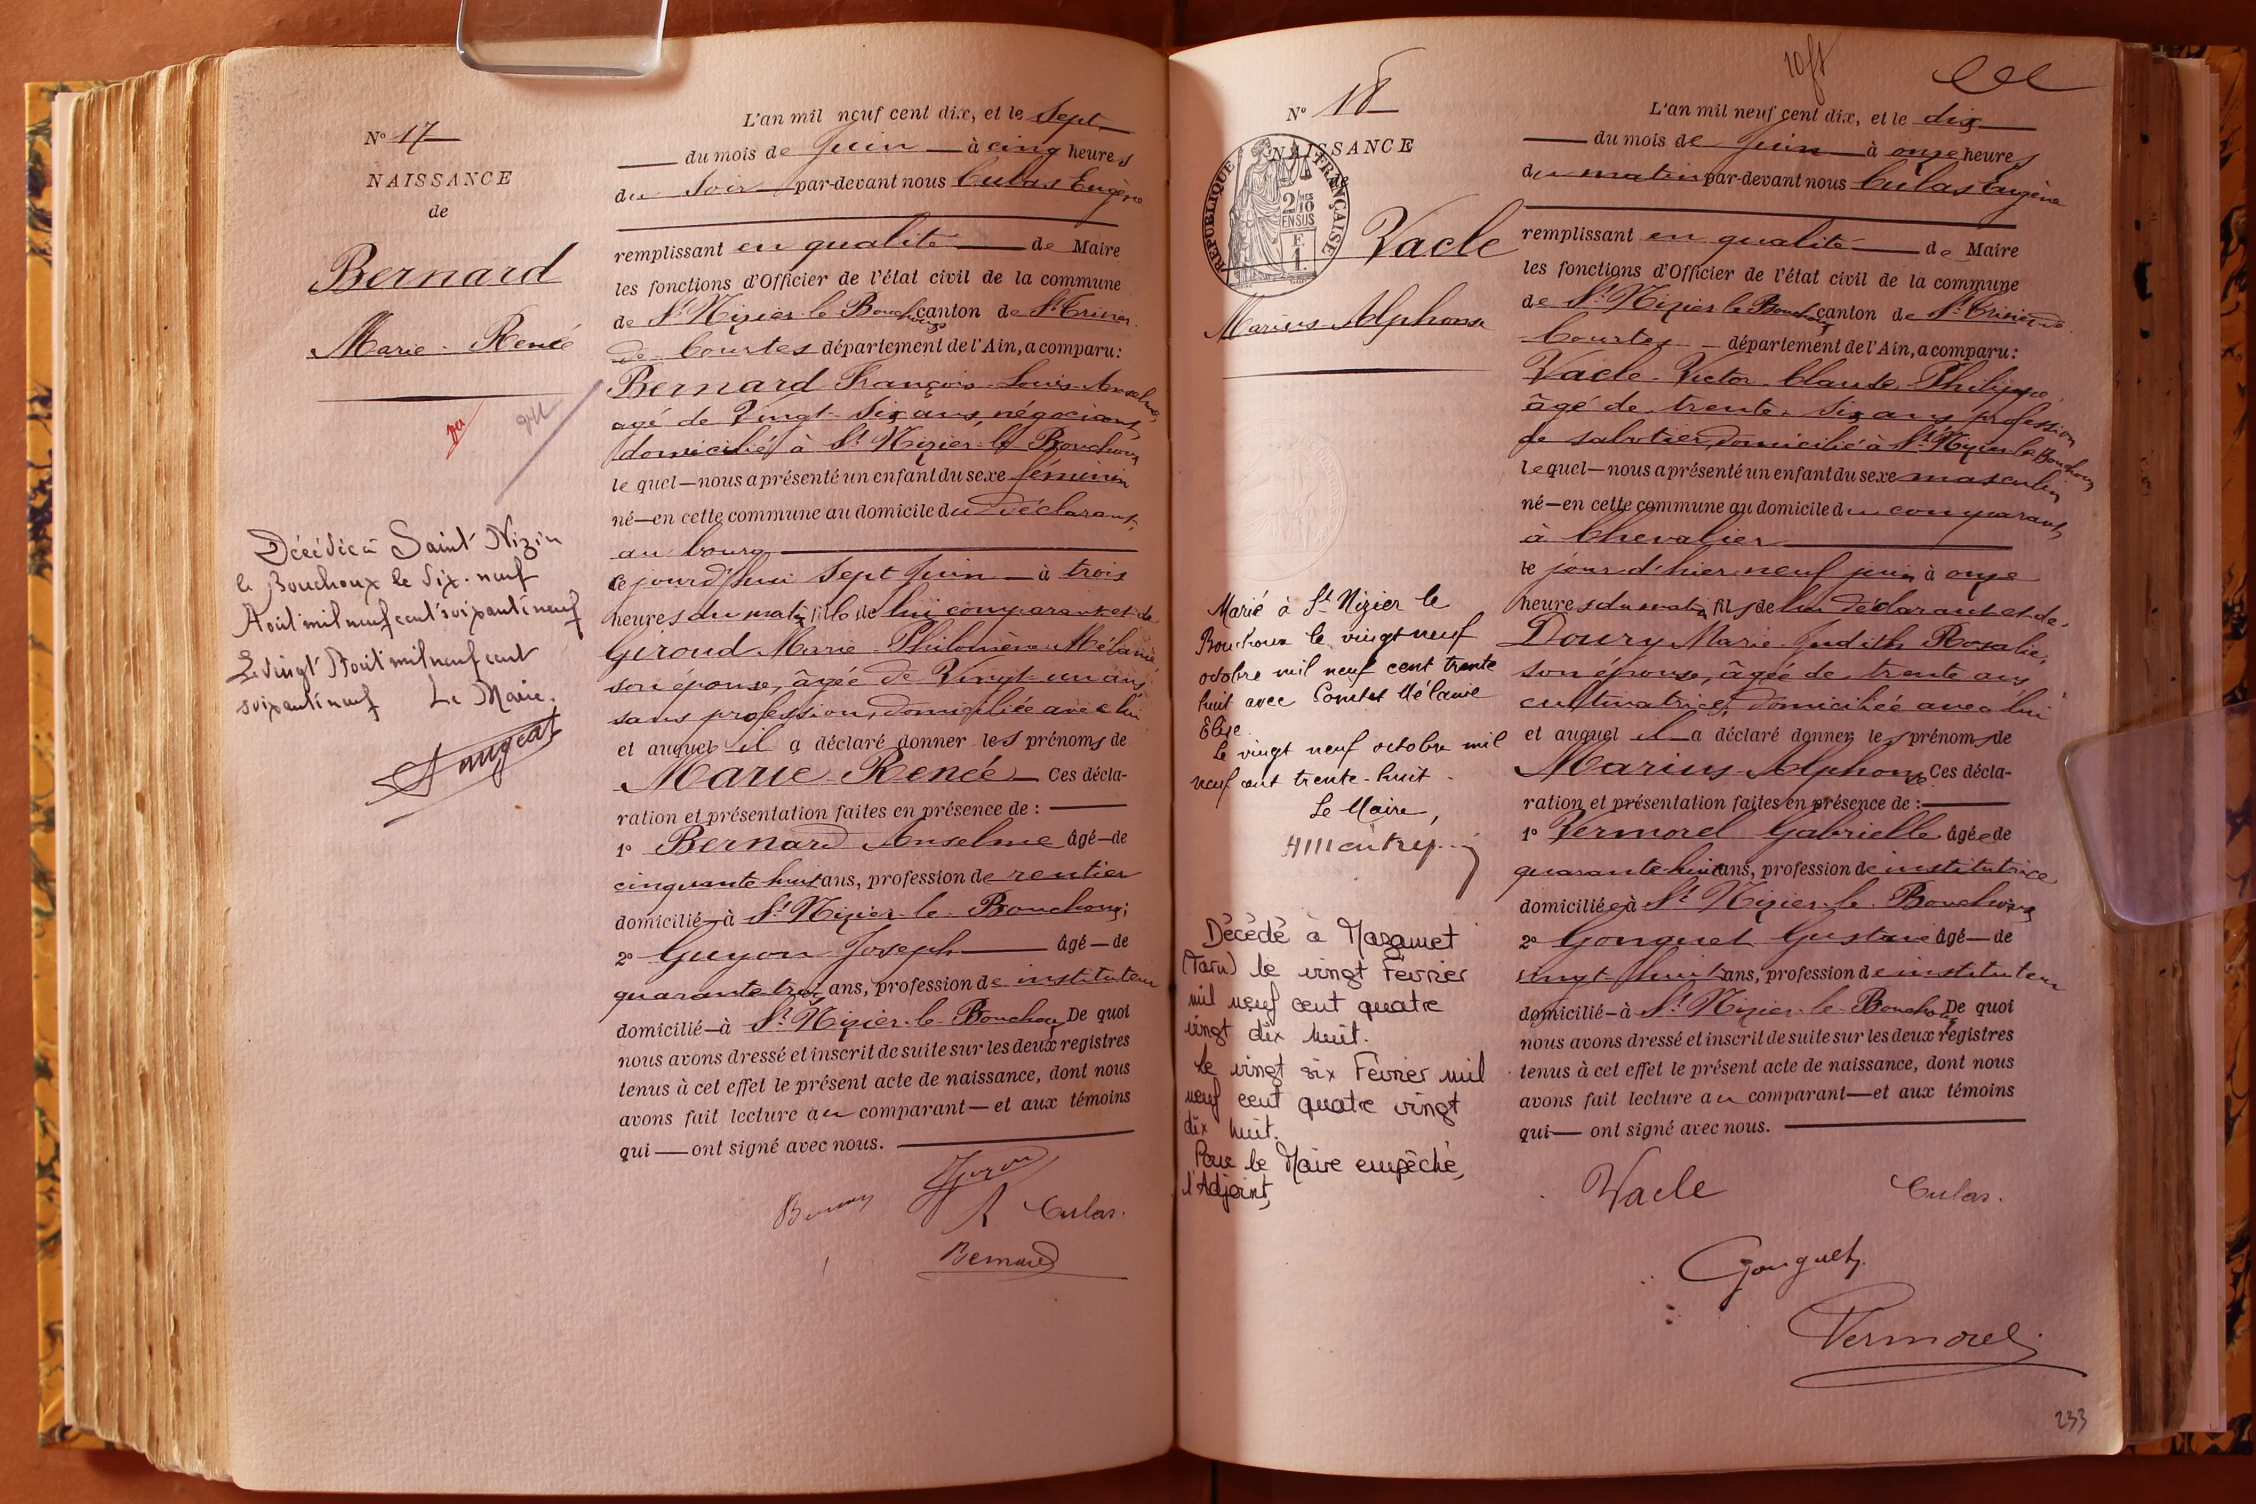 N° 17
NAISSANCE
de
Bernard
Marie-Renée
Décédée à Saint Nizier
le Bouchoux le dix-neuf
Août mil neuf cent soixante neuf
Le vingt Août mil neuf cent
soixante neuf Le Maire.
L'an mil neuf cent dix, et le Sept
du mois de Juin à cinq heures
du Soir par-devant nous Culas Eugène
remplissant en qualité de Maire
les fonctions d'Officier de l'état civil de la commune
de St Nizier-le-Bouchoux canton de St Trivier
de Courtes département de l'Ain, a comparu:
Bernard François-Louis-Anselme,
agé de Vingt-six ans, négociant,
domicilié à St Nizier-le-Bouchoux
lequel—nous a présenté un enfant du sexe féminin
né—en cette commune au domicile du déclarant,
au bourg
ce jourd'hui Sept Juin à trois
heures du matin fille de lui comparant et de
Giroud Marie-Philomène-Mélanie
son épouse, âgée de Vingt-un ans,
sans profession, domiciliée avec lui
et auquel il a déclaré donner les prénoms de
Marie-Renée Ces décla-
ration et présentation faites en présence de :
1° Bernard Anselme âgé—de
cinquante huit ans, profession de rentier
domicilié—à St Nizier-le-Bouchoux;
2° Guyon Joseph âgé—de
quarante trois ans, profession de instituteur
domicilié—à St Nizier-le-Bouchoux De quoi
nous avons dressé et inscrit de suite sur les deux registres
tenus à cet effet le présent acte de naissance, dont nous
avons fait lecture au comparant—et aux témoins
qui—ont signé avec nous.
Culas.
Bernard
N° 18
NAISSANCE
de
RÉPUBLIQUE FRANÇAISE
2/10
EN SUS
Vacle
Marius-Alphonse
Marié à St Nizier le
Bouchoux le vingt neuf
octobre mil neuf cent trente
huit avec Comtet Mélanie
Elise
Le vingt neuf octobre mil
neuf cent trente-huit.
Le Maire,
Décédé à Mazamet
(Tarn) le vingt Février
mil neuf cent quatre
vingt dix huit.
Le vingt six Février mil
neuf cent quatre vingt
dix huit.
Pour le Maire empêché,
l'Adjoint,
L'an mil neuf cent dix, et le dix
du mois de Juin à onze heures
du matin par-devant nous Culas Eugène
remplissant en qualité de Maire
les fonctions d'Officier de l'état civil de la commune
de St Nizier-le-Bouchoux canton de St Trivier-de
Courtes département de l'Ain, a comparu:
Vacle-Victor-Claude-Philippe,
âgé de trente-six ans profession
de sabotier, domicilié à St Nizier-le-Bouchoux
lequel—nous a présenté un enfant du sexe masculin
né—en cette commune au domicile du comparant,
à Chevalier
le jour d'hier neuf juin à onze
heures du matin fils de lui déclarant et de
Doury Marie-Judith Rosalie,
son épouse, âgée de trente ans,
cultivatrice, domiciliée avec lui
et auquel il a déclaré donner les prénoms de
Marius-Alphonse Ces décla-
ration et présentation faites en présence de :
1° Vermorel Gabrielle âgée de
quarante huit ans, profession de institutrice
domiciliée à St Nizier-le-Bouchoux
2° Gonguet Gustave âgé—de
vingt-huit ans, profession de instituteur
domicilié—à St Nizier-le-Bouchoux De quoi
nous avons dressé et inscrit de suite sur les deux registres
tenus à cet effet le présent acte de naissance, dont nous
avons fait lecture au comparant—et aux témoins
qui—ont signé avec nous.
Vacle Culas.
Gonguet
Vermorel
233